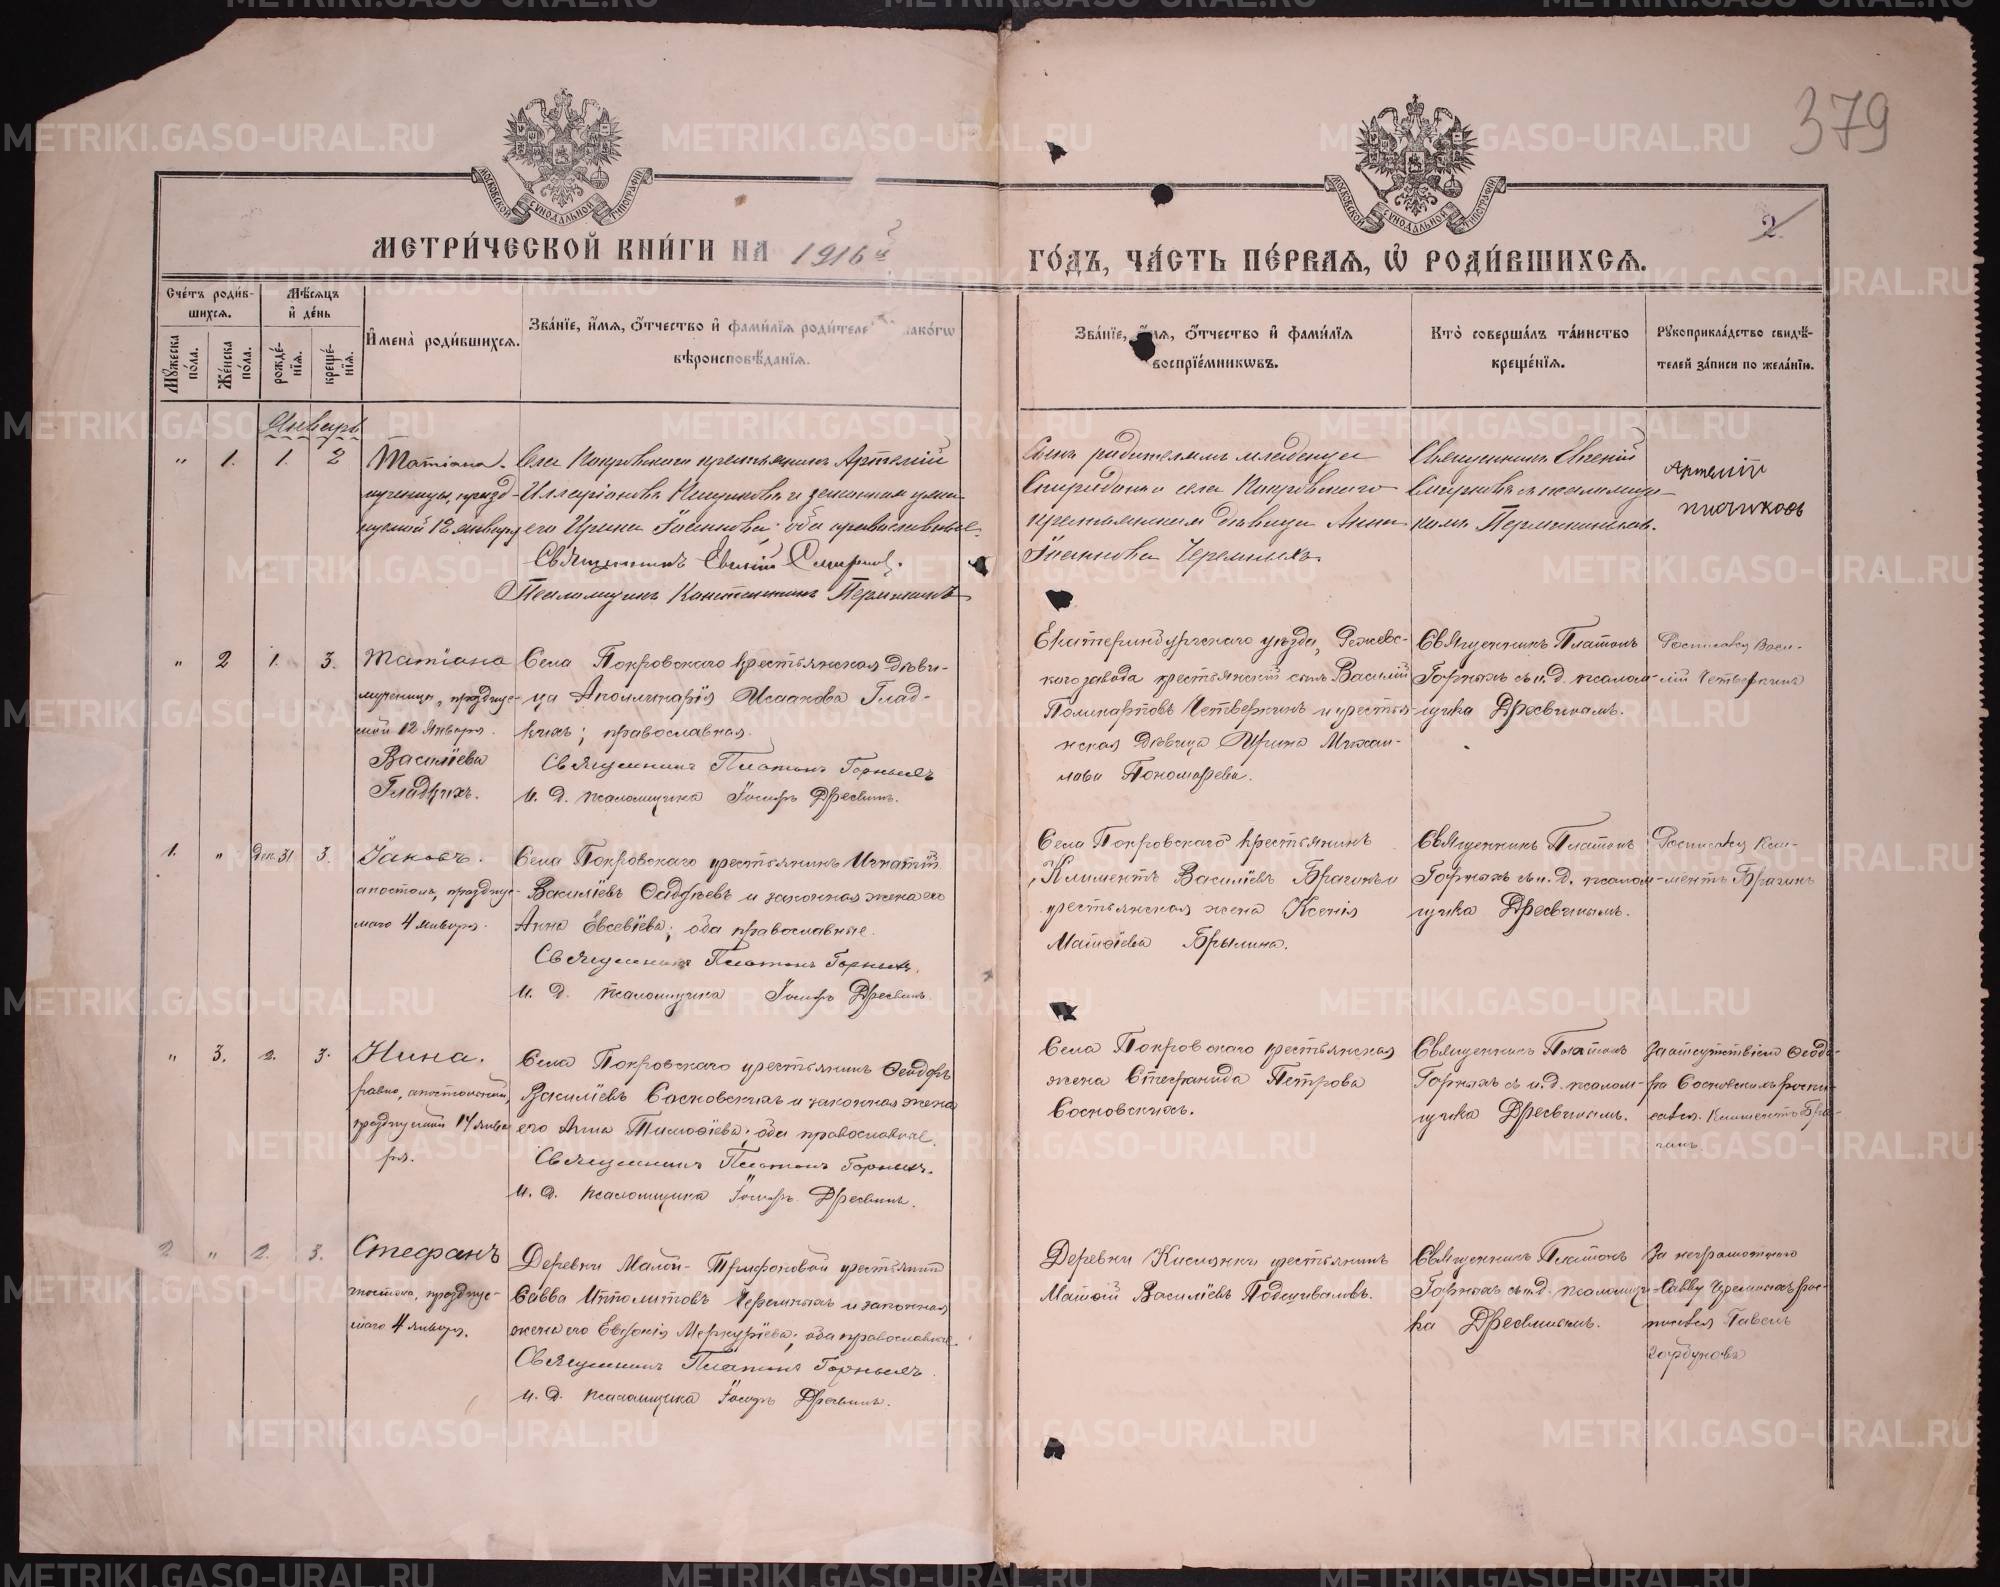 379
2
МОСКОВСКОЙ СѴНОДАЛЬНОЙ ТИПОГРАФІИ
МОСКОВСКОЙ СѴНОДАЛЬНОЙ ТИПОГРАФІИ
МЕТРИ́ЧЕСКОЙ КНИ́ГИ НА 1916й
ГО́ДЪ, ЧА́СТЬ ПЕ́РВАЯ, Ѡ҆ РОДИ́ВШИХСЯ.
Сче́тъ роди́в-
шихся.
Мѣ́сяцъ
и҆ де́нь
Му́жеска по́ла.
Же́нска по́ла.
рожде́-
нїя.
креще́-
нїя.
И҆мена̀ роди́вшихся.
Зва́нїе, и҆́мя, ѻ҆́тчество и҆ фами́лїя роди́теле
како́гѡ
вѣроисповѣ́данїя.
Зва́нїе, и҆́мя, ѻ҆́тчество и҆ фами́лїя
воспрїе́мникѡвъ.
Кто̀ соверша́лъ та́инство
креще́нїя.
Рукоприкла́дство свидѣ́-
телей за́писи по жела́нїю.
Январь
" 1. 1. 2
Татіана.
мученицы, празд-
нуемой 12 января
Села Покровскаго крестьянинъ Артемій
Илларіоновъ Пищиковъ и законная жена
его Ирина Іоаннова; оба православные.
Священникъ Евгеній Смирнов.
Псаломщикъ Константинъ
Сынъ родителямъ младенца
Спиридонъ и села Покровскаго
крестьянская дѣвица Анна
Іоаннова Черемныхъ.
Священникъ Евгеній
Смирновъ съ псаломщи-
комъ
Артемій
пищиковъ
" 2 1. 3.
Татіана
мученицы, празднуе-
мой 12 Января.
Василіева
Гладкихъ.
Села Покровскаго крестьянская дѣви-
ца Аполлинарія Исаакова Глад-
кихъ; православная.
Священникъ Платонъ Горныхъ
И. д. псаломщика Іосифъ Дресвинъ.
Екатеринбургскаго уѣзда, Режевс-
каго завода крестьянскій сынъ Василій
Поликарповъ Четверкинъ и крестья-
нская дѣвица Ирина Михаи-
лова Пономарева.
Священникъ Платонъ
Горныхъ съ и. д. псалом-
щика Дресвинымъ.
Росписался Васи-
лій Четверкинъ
1. " Дек. 31 3.
Іаковъ.
апостолъ, празднуе-
маго 4 января.
Села Покровскаго крестьянинъ Игнатій
Василіевъ Ѳаддѣевъ и законная жена его
Анна Евсевіева; оба православные.
Священникъ Платонъ Горныхъ.
И. д. псаломщика Іосифъ Дресвинъ.
Села Покровскаго крестьянинъ
Климентъ Василіевъ Брагинъ и
крестьянская жена Ксенія
Матѳіева Брылина.
Священникъ Платонъ
Горныхъ съ и. д. псалом-
щика Дресвинымъ.
Росписался Кли-
ментъ Брагинъ
" 3. 2. 3.
Нина.
равно, апостольной,
празднуемой 14 янва-
ря.
Села Покровскаго крестьянинъ Ѳеодоръ
Василіевъ Сосновскихъ и законная жена
его Анна Тимоѳіева; оба православные.
Священникъ Платонъ Горныхъ.
И. д. псаломщика Іосифъ Дресвинъ.
Села Покровскаго крестьянская
жена Стефанида Петрова
Сосновскихъ.
Священникъ Платонъ
Горныхъ съ и. д. псалом-
щика Дресвинымъ.
За отсутствіемъ Ѳеодо-
ра Сосновскихъ роспи-
сался Климентъ Бра-
гинъ
2 " 2. 3.
Стефанъ
апостола, празднуе-
маго 4 января.
Деревни Малой-Трифоновой крестьянинъ
Савва Ипполитовъ Черемныхъ и законная
жена его Евгенія Меркуріева; оба православные.
Священникъ Платонъ Горныхъ.
И. д. псаломщика Іосифъ Дресвинъ.
Деревни Кислянки крестьянинъ
Матѳій Василіевъ Подшиваловъ.
Священникъ Платонъ
Горныхъ съ и. д. псаломщи-
ка Дресвинымъ.
За неграмотнаго
Савву Черемныхъ рос-
писался Павелъ
Горбуновъ
METRIKI.GASO-URAL.RU